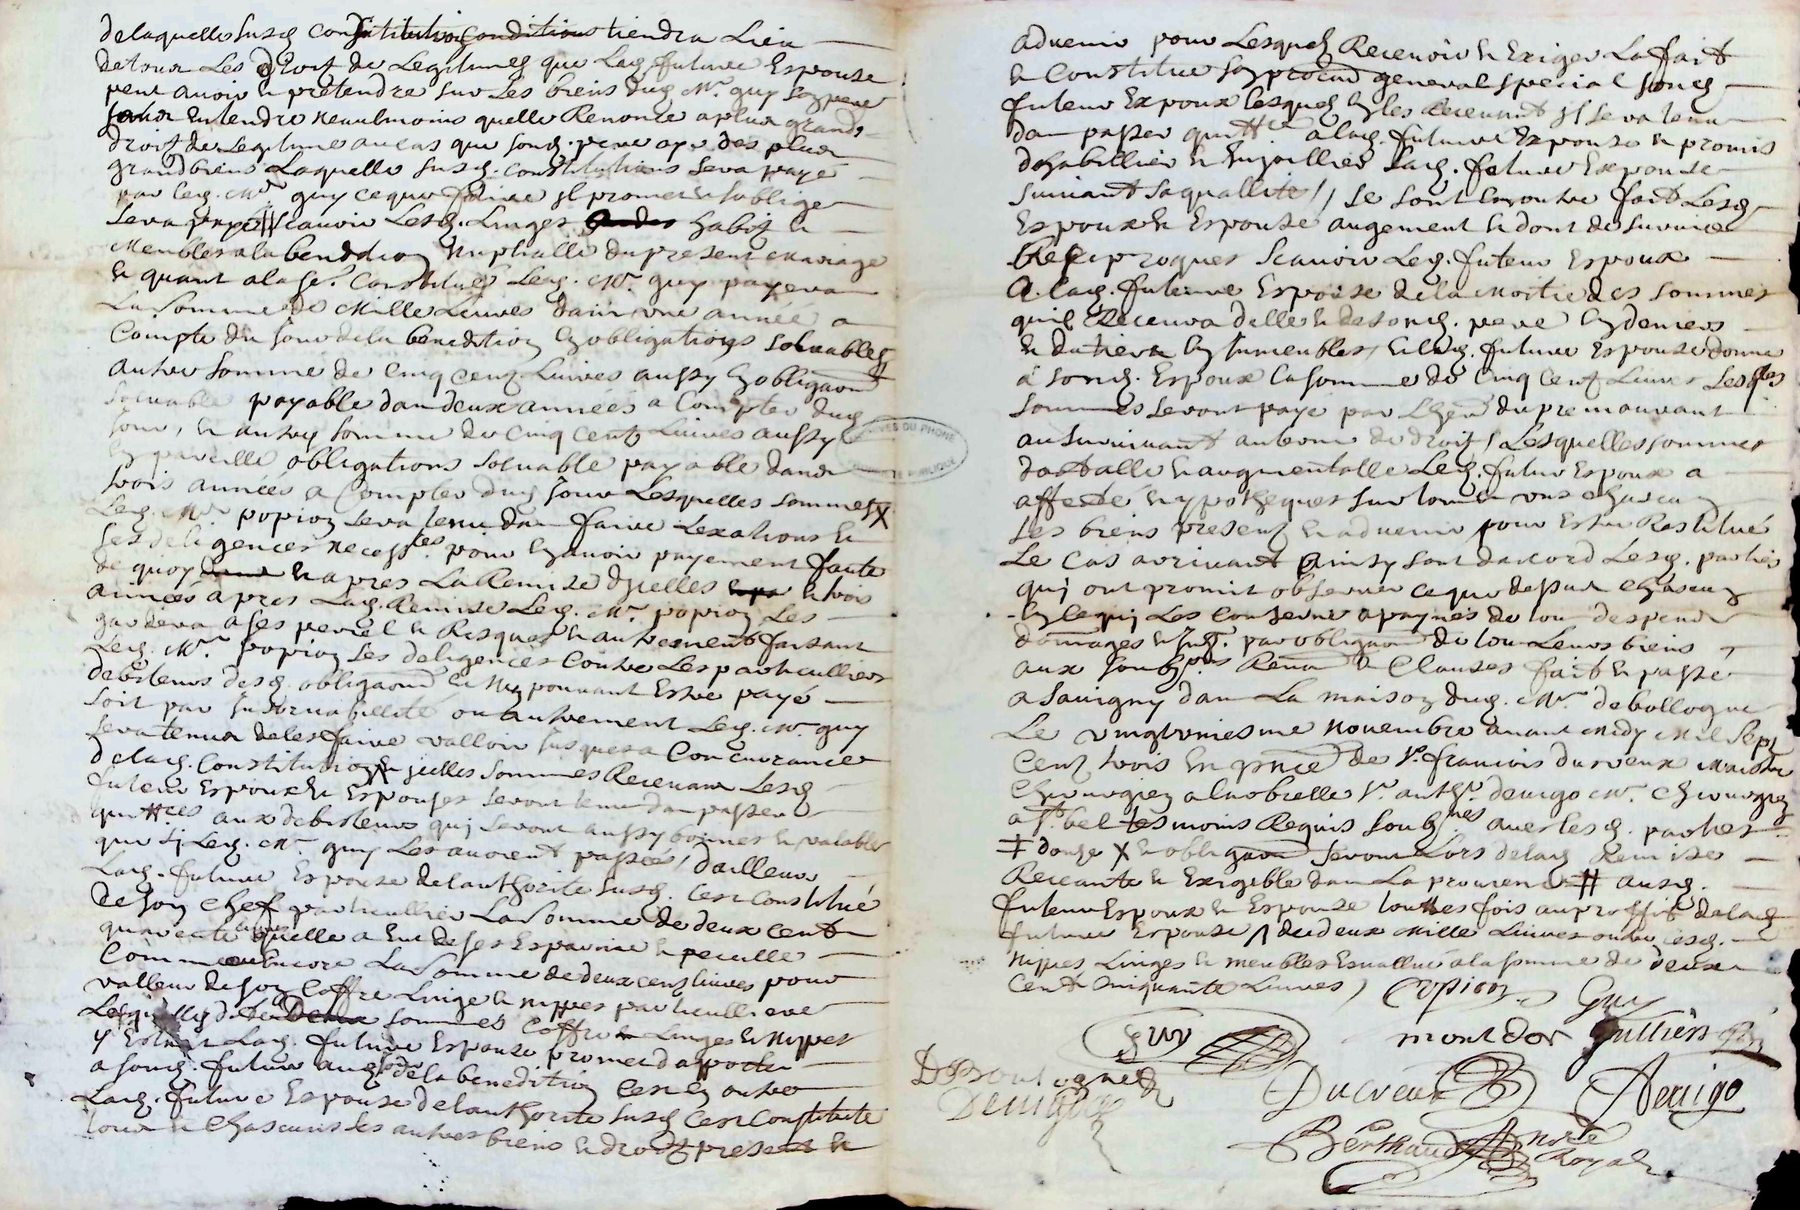 delaquelle susd constitution conditions tiendra Lieu
detour Les droit de Legitimes que Lad future Espouse
peut avoir & pretendre sur Les biens dud Mr guy son pere
Entendre neaulmoins quelle Renonce a plus grands
droit de Legitime au cas que sond. pere aye des plus
grand biens Laquelle susd. constitutions sera payé
par led. Mr guy ce que faire jl promet & soblige
sera payé scavoir Lesd. Linges habis &
Meubles a la benediction Nuptialle du present Mariage
& quant a la se. Constitué Led. Mr. guy payera
La somme de Mille Livres dans une année a
Compte du Jour de la benedition En obligations solvables
autre somme de Cinq cent Livres aussy En obligaon
solvable payable dans deux années a Compter dud
jour, & autre somme de Cinq cent Livres aussy
En pareille obligations solvable payable dans
trois années a Compter dud Jour Lesquelles sommes X
Led. Mr. popion sera tenu de faire Lexations &
ses deligences necessres pour En avoir payement faute
de quoy & apres La Remise dicelles & trois
années apres Lad. Remise Led. Mr popion Les
gardera a ses peril & Risques & autrement faisant
Led. Mr popion Les deligences Contre Les particulliers
debiteurs desd. obligaons & Ny pouvant Estre payé
soit par Insolvabillité ou autrement Led. Mr. guy
sera tenu de les faire valloir jusques a Concurrance
delad. Constitution & jcelles sommes Recevant Lesd
futeur Espoux & Espouses seront tenu de passer
quittces aux debiteurs quj seront aussy bonnes & valables
que sj Led. Mr. guy Les avoient passées / dailleurs
Lad. future Espouse de lauthorite susd. cest Constitué
de son Chef particullier La somme de deux cent
quarente quelle a Eue de ses Espargne & peculle
Comme Encore La somme de deux cens livres pour
valleur de son Coffre Linge & nippes particulliere
sommes Coffre & Linges & nippes
Lad. future Espouse promet dapporter
a sond. futeur de la benedition cest En outre
Lad. future Espouse de lauthorite susd cest Constitué
tous & Chascuns ses autres biens & droitz present &
advenir pour Lesquels Recevoir & Exiger La fait
& Constitue son procur general special sond
futeur Expoux lesquels En les Recevant jl sera tenu
dan passer quittce a lad. future Espouse & promis
dhabillier & Enjoillier Lad. future Espouse
suivant sa quallité // se sont En outre fait Lesd
Espoux & Espouse augement & dont de survie
Reciproques Scavoir Led. futeur Espoux
A lad. future Espouse de la Moitie des sommes
quil Recevra delle & de sond. pere En deniers
& du tiers En Inmeubles / & lad. future Espouse donne
a sond. Espoux la somme de Cinq cent Livres Lesqlles
sommes seront payé par Lher du premourant
au survivant au terme de droit / Lesquelles sommes
dottalle & augmentalle Led. futur Espoux a
affecté & ypotheques sur tous & uns Chascun
ses biens present & advenir pour Estre Restitué
Le Cas arrivant Ainsy sont dacord Lesd. parties
quj ont promit observer ce que dessus Chascun
En ce quj Les Conserne a paynes de tous despend
domages & Int. par obligaon de tous Leurs biens
aux soubzms Renon & Clauses fait & passé
a Savigny dans La maison dud. Mr. debollogne
Le vingtuniesme Novembre avant Midy Mil Sept
Cent trois En pnce de Sr. francois ducreux Maistre
Chirurgien a Larbrelle Sr. anthe. deriigo Mr. Chirurgien
a St. bel tesmoins Requis soubznes avec lesd. parties
‡ donze X & obligaon seront Lors delad Remise
Recevante & Exigible dan La province // ausd.
futeur Espoux & Espouse touttes fois au proffit delad
future Espouse / de deux Mille Livres outre cesd.
nippes Linges & meubles Evallué a la somme de deux
cent cinquante Livres / Popion Guy
guy montdor Gulliên
DeBoulogne Ducreux Deriigo
Deriigo
Berthaud Nore Royal